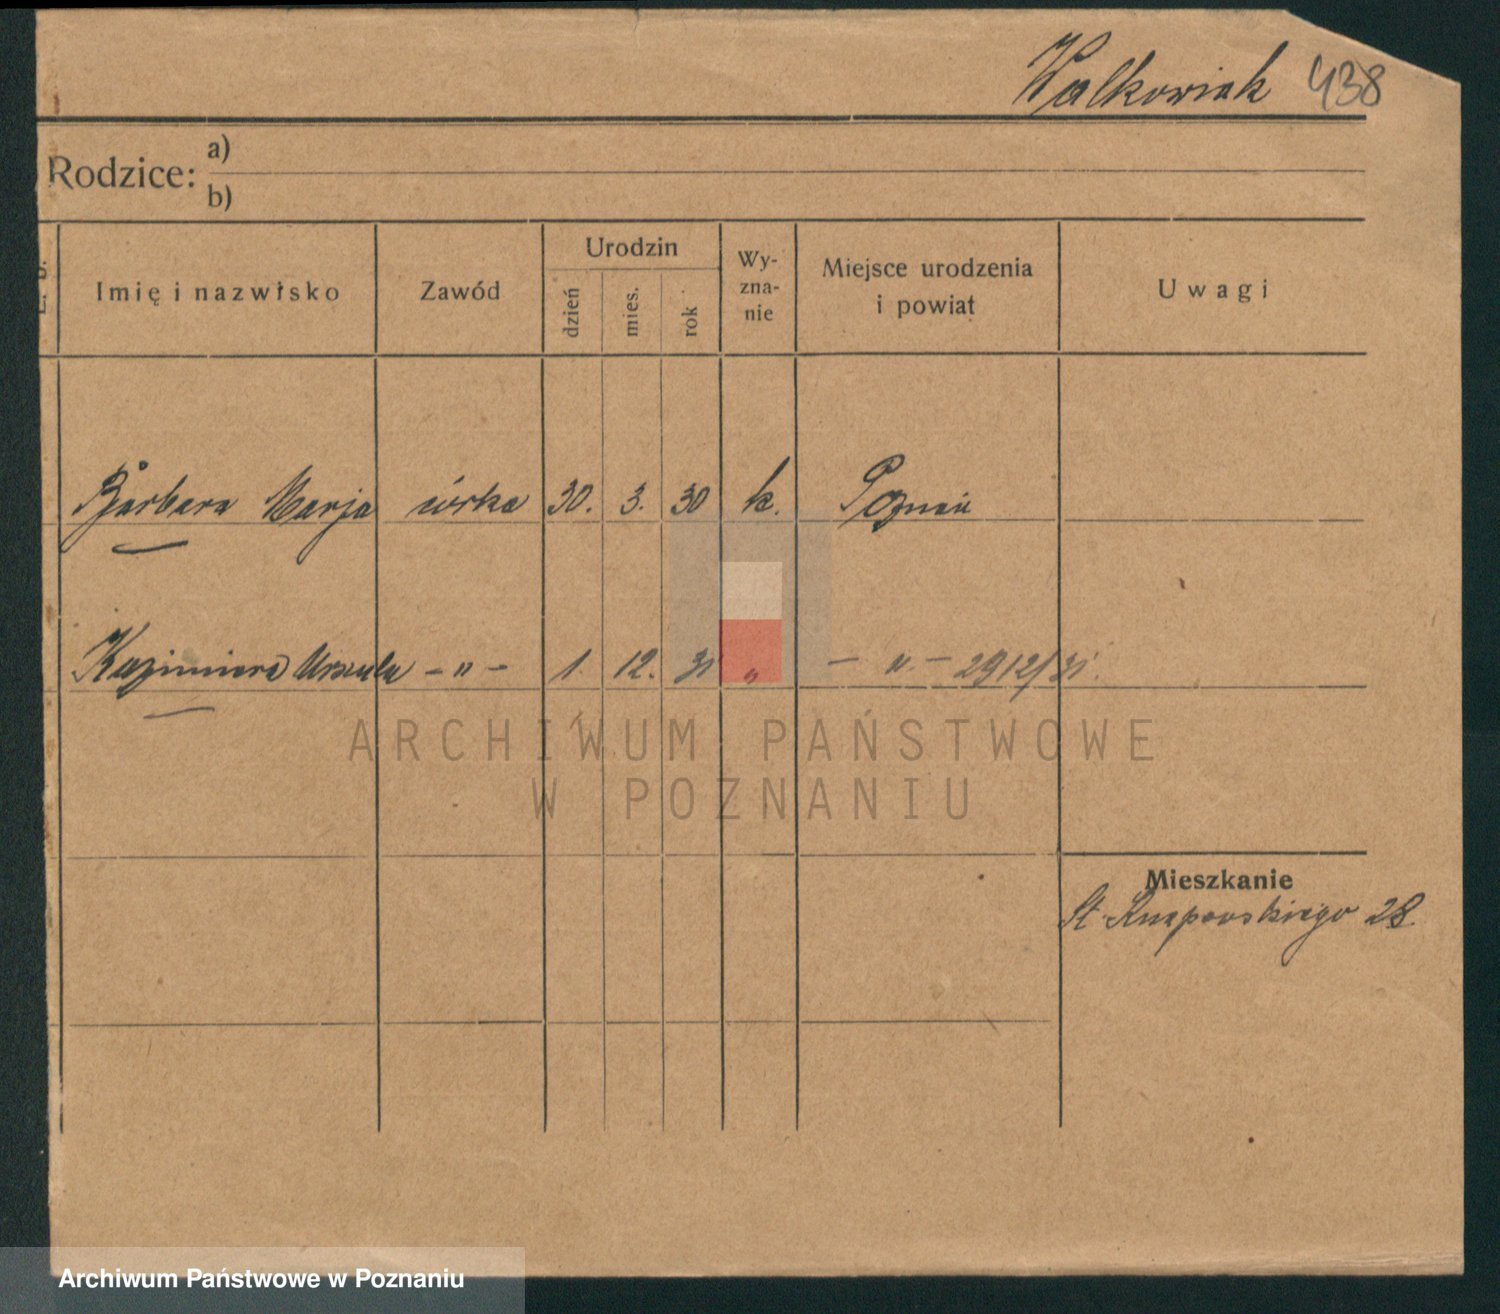 Walkowiak 438
Rodzice: a)
b)
L. B.
Imię i nazwisko
Zawód
Urodzin
dzień
mies.
rok
Wy-
zna-
nie
Miejsce urodzenia
i powiat
Uwagi
Barbara Marja córka 30. 3. 30 k. Poznań
Kazimiera Urszula – „ – 1. 12. 31 „ – „ – 2912/31.
ARCHIWUM PAŃSTWOWE
W POZNANIU
Mieszkanie
St. Knapowskiego 28.
Archiwum Państwowe w Poznaniu